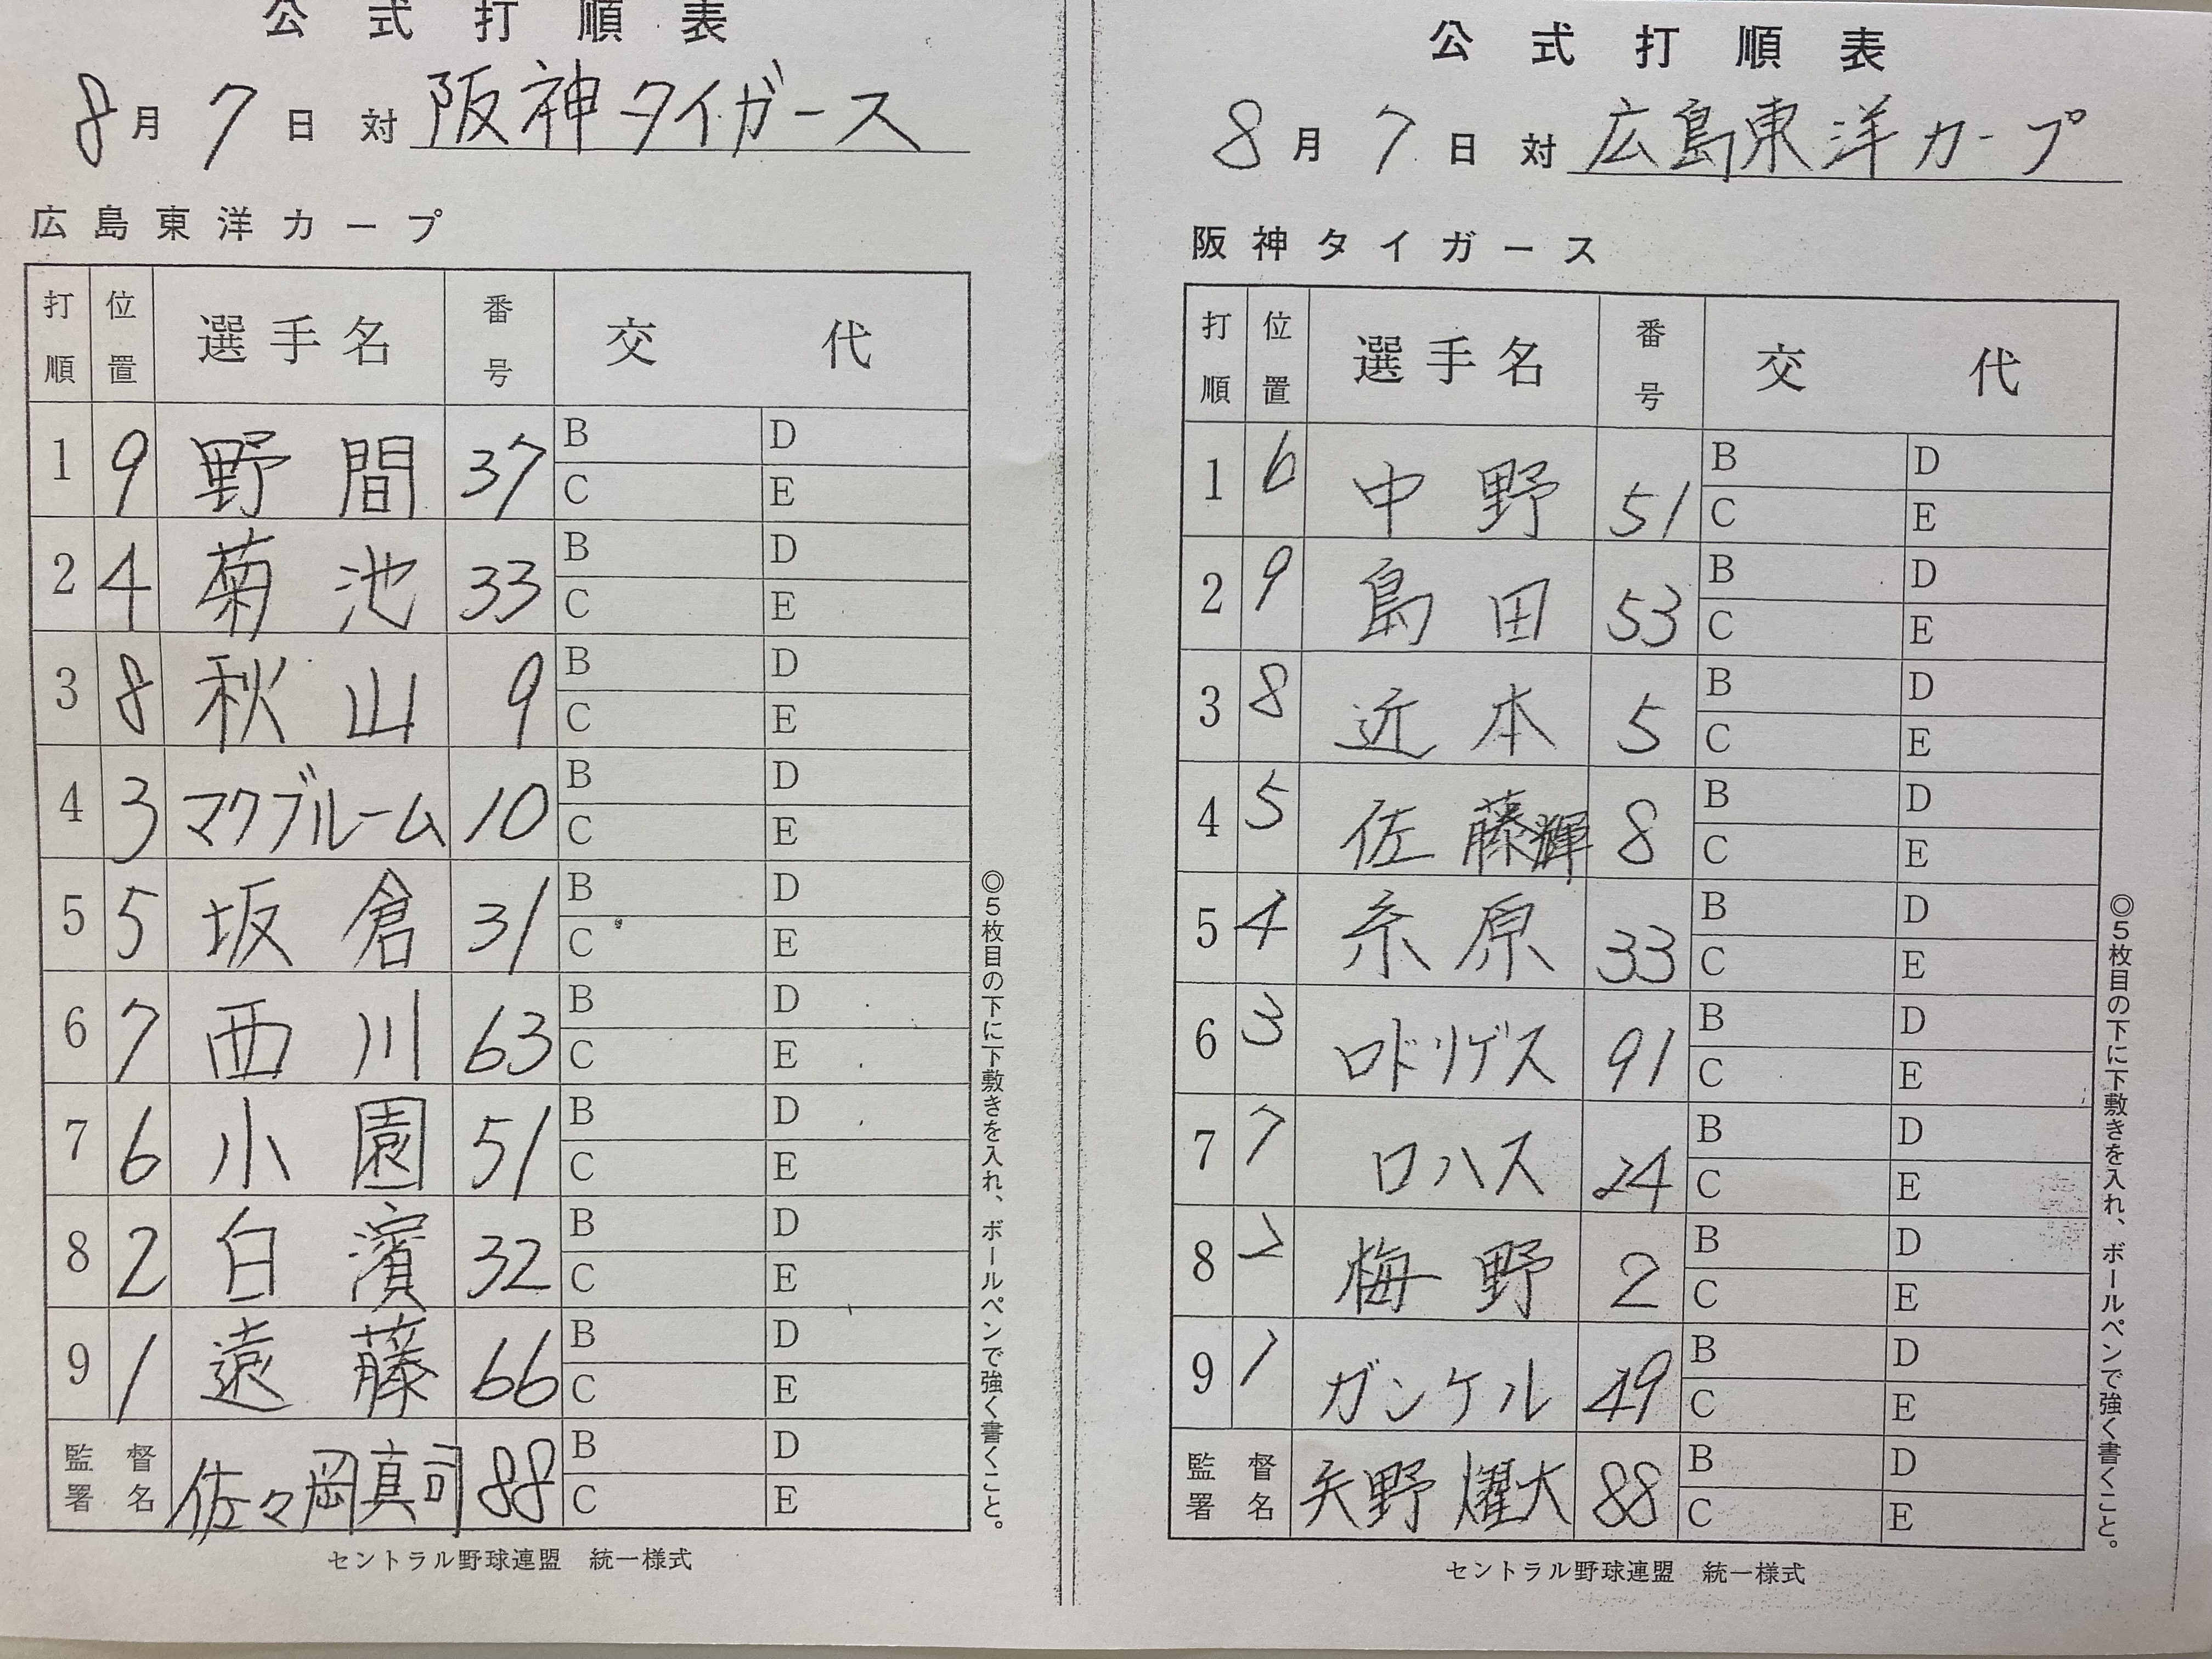 公式打順表
8月7日 対 阪神タイガース
広島東洋カープ
打順 位置 選手名 番号 交代
1 9 野間 37 B D C E
2 4 菊池 33 B D C E
3 8 秋山 9 B D C E
4 3 マクブルーム 10 B D C E
5 5 坂倉 31 B D C E
6 7 西川 63 B D C E
7 6 小園 51 B D C E
8 2 白濱 32 B D C E
9 1 遠藤 66 B D C E
監督署名 佐々岡真司 88 B D C E
◎5枚目の下に下敷きを入れ、ボールペンで強く書くこと。
セントラル野球連盟 統一様式
公式打順表
8月7日 対 広島東洋カープ
阪神タイガース
打順 位置 選手名 番号 交代
1 6 中野 51 B D C E
2 9 島田 53 B D C E
3 8 近本 5 B D C E
4 5 佐藤輝 8 B D C E
5 4 糸原 33 B D C E
6 3 ロドリゲス 91 B D C E
7 7 ロハス 24 B D C E
8 2 梅野 2 B D C E
9 1 ガンケル 49 B D C E
監督署名 矢野燿大 88 B D C E
◎5枚目の下に下敷きを入れ、ボールペンで強く書くこと。
セントラル野球連盟 統一様式